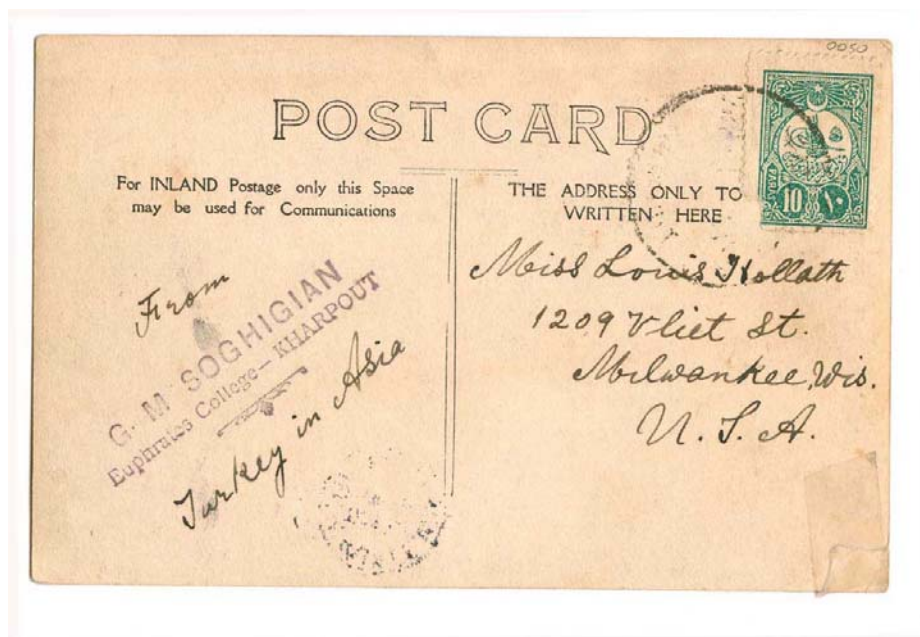 0050
POST CARD
For INLAND Postage only this Space
may be used for Communications
THE ADDRESS ONLY TO
WRITTEN HERE
10 ١٠
From
G. M SOGHIGIAN
Euphrates College – KHARPOUT
Turkey in Asia
Miss Louis Hollath
1209 Vliet St.
Milwankee, Wis.
U. S. A.